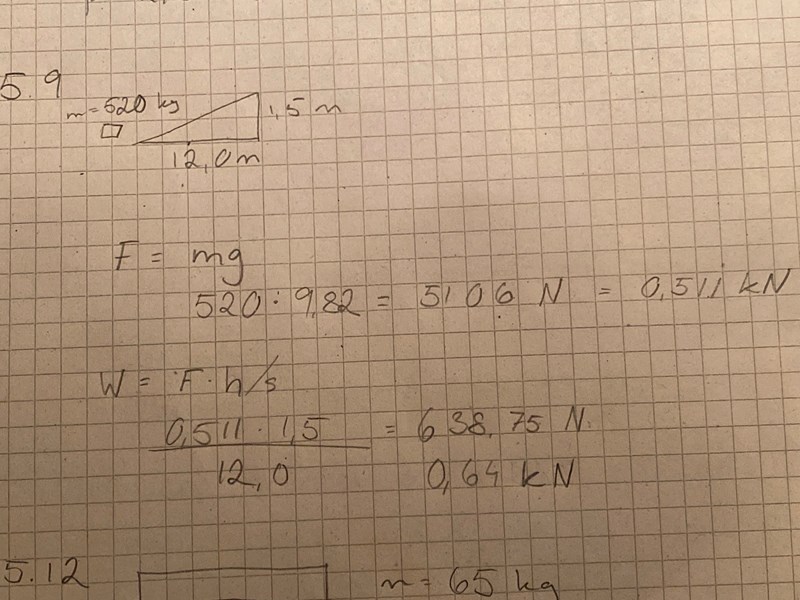 5.9
m = 520 kg
1,5 m
12,0m
F = mg
520 · 9,82 = 5106 N = 0,511 kN
W = F · h/s
0,511 · 1,5 = 638,75 N
12,0 0,64 kN
5.12 m = 65 kg